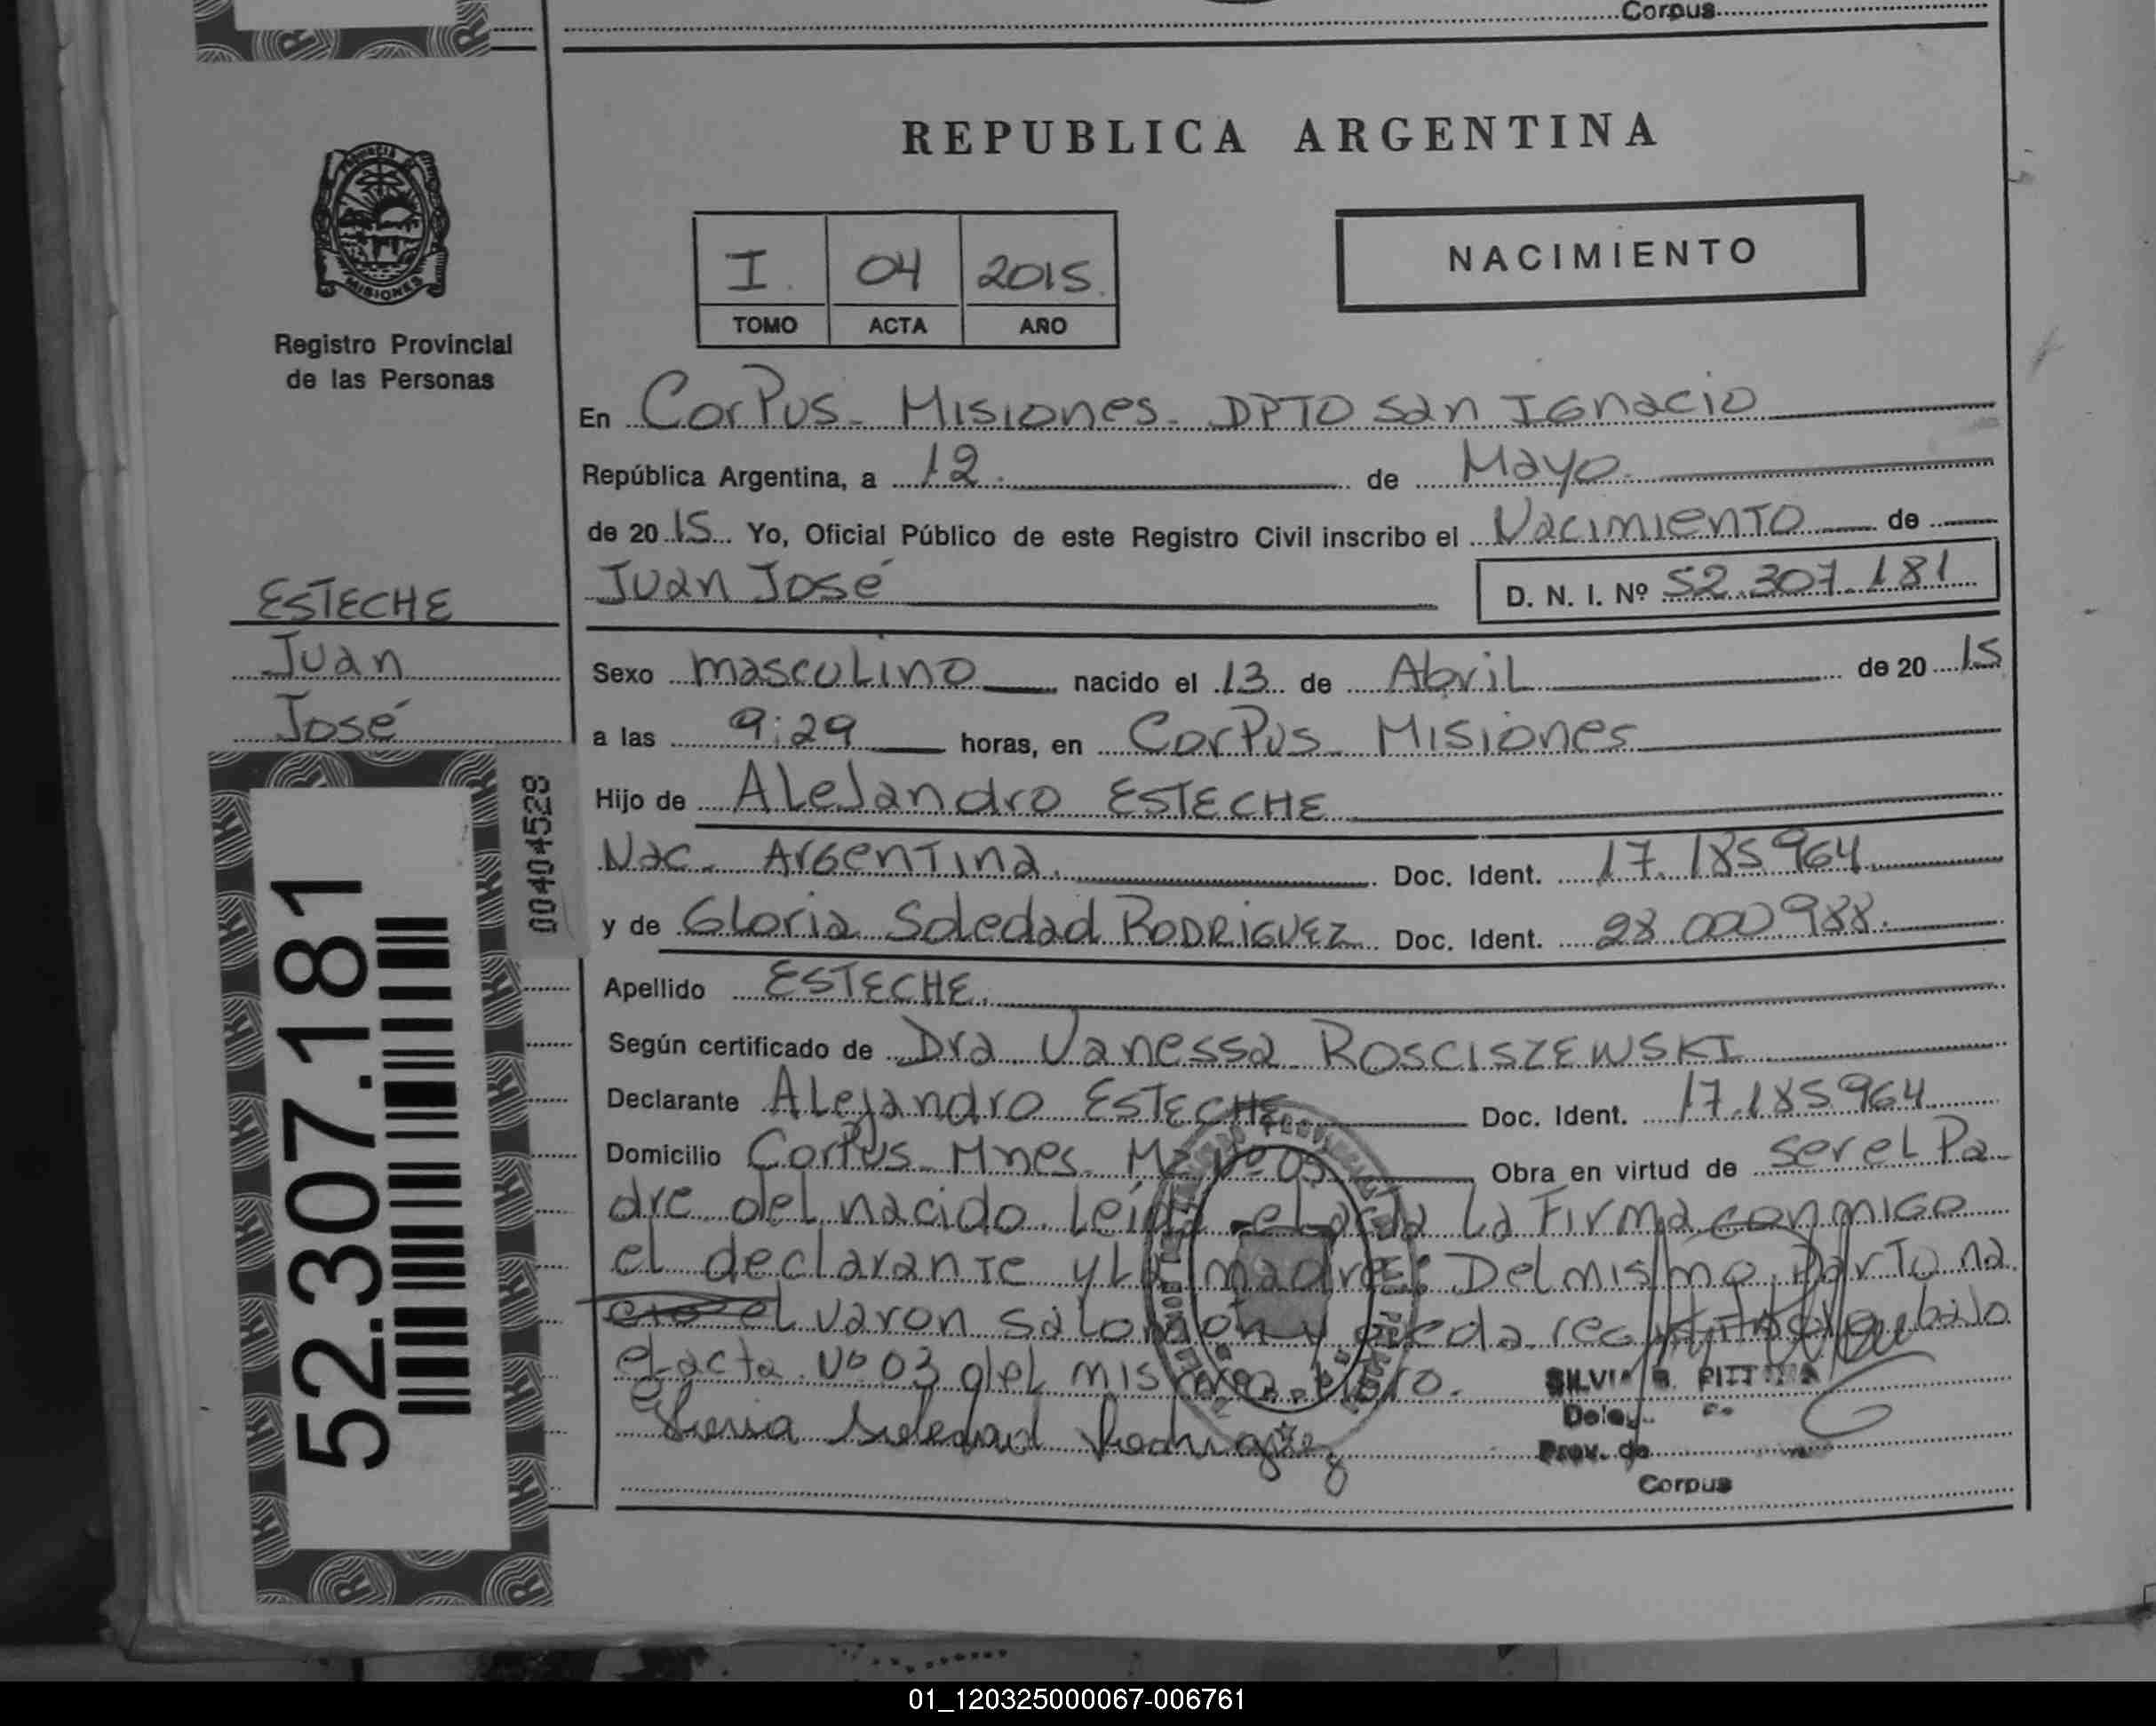 Corpus
REPUBLICA ARGENTINA
NACIMIENTO
I. 04 2015.
TOMO ACTA AÑO
MISIONES
Registro Provincial
de las Personas
En Corpus - Misiones - DPTO San Ignacio
República Argentina, a 12. de Mayo.
de 2015 Yo, Oficial Público de este Registro Civil inscribo el Nacimiento de
Juan José
D. N. I. Nº 52.307.181
ESTECHE
Juan
José
Sexo masculino nacido el 13 de Abril de 2015
a las 9:29 horas, en Corpus - Misiones
Hijo de Alejandro ESTECHE
Nac. Argentina. Doc. Ident. 17.185964
y de Gloria Soledad RODRIGUEZ Doc. Ident. 28.000988.
Apellido ESTECHE.
Según certificado de Dra Vanessa ROSCISZEWSKI
Declarante Alejandro ESTECHE Doc. Ident. 17.185964
Domicilio Corpus - Mnes. Mz Nº 05 Obra en virtud de ser el Pa-
dre del nacido. Leída el acta la Firma conmigo
el declarante y La madre. Del mismo Parto na
el varon salomón y queda bajo
el acta Nº 03 del mismo Libro.
SILVIA
Corpus
Soledad Rodriguez
52.307.181
00404528
01_120325000067-006761